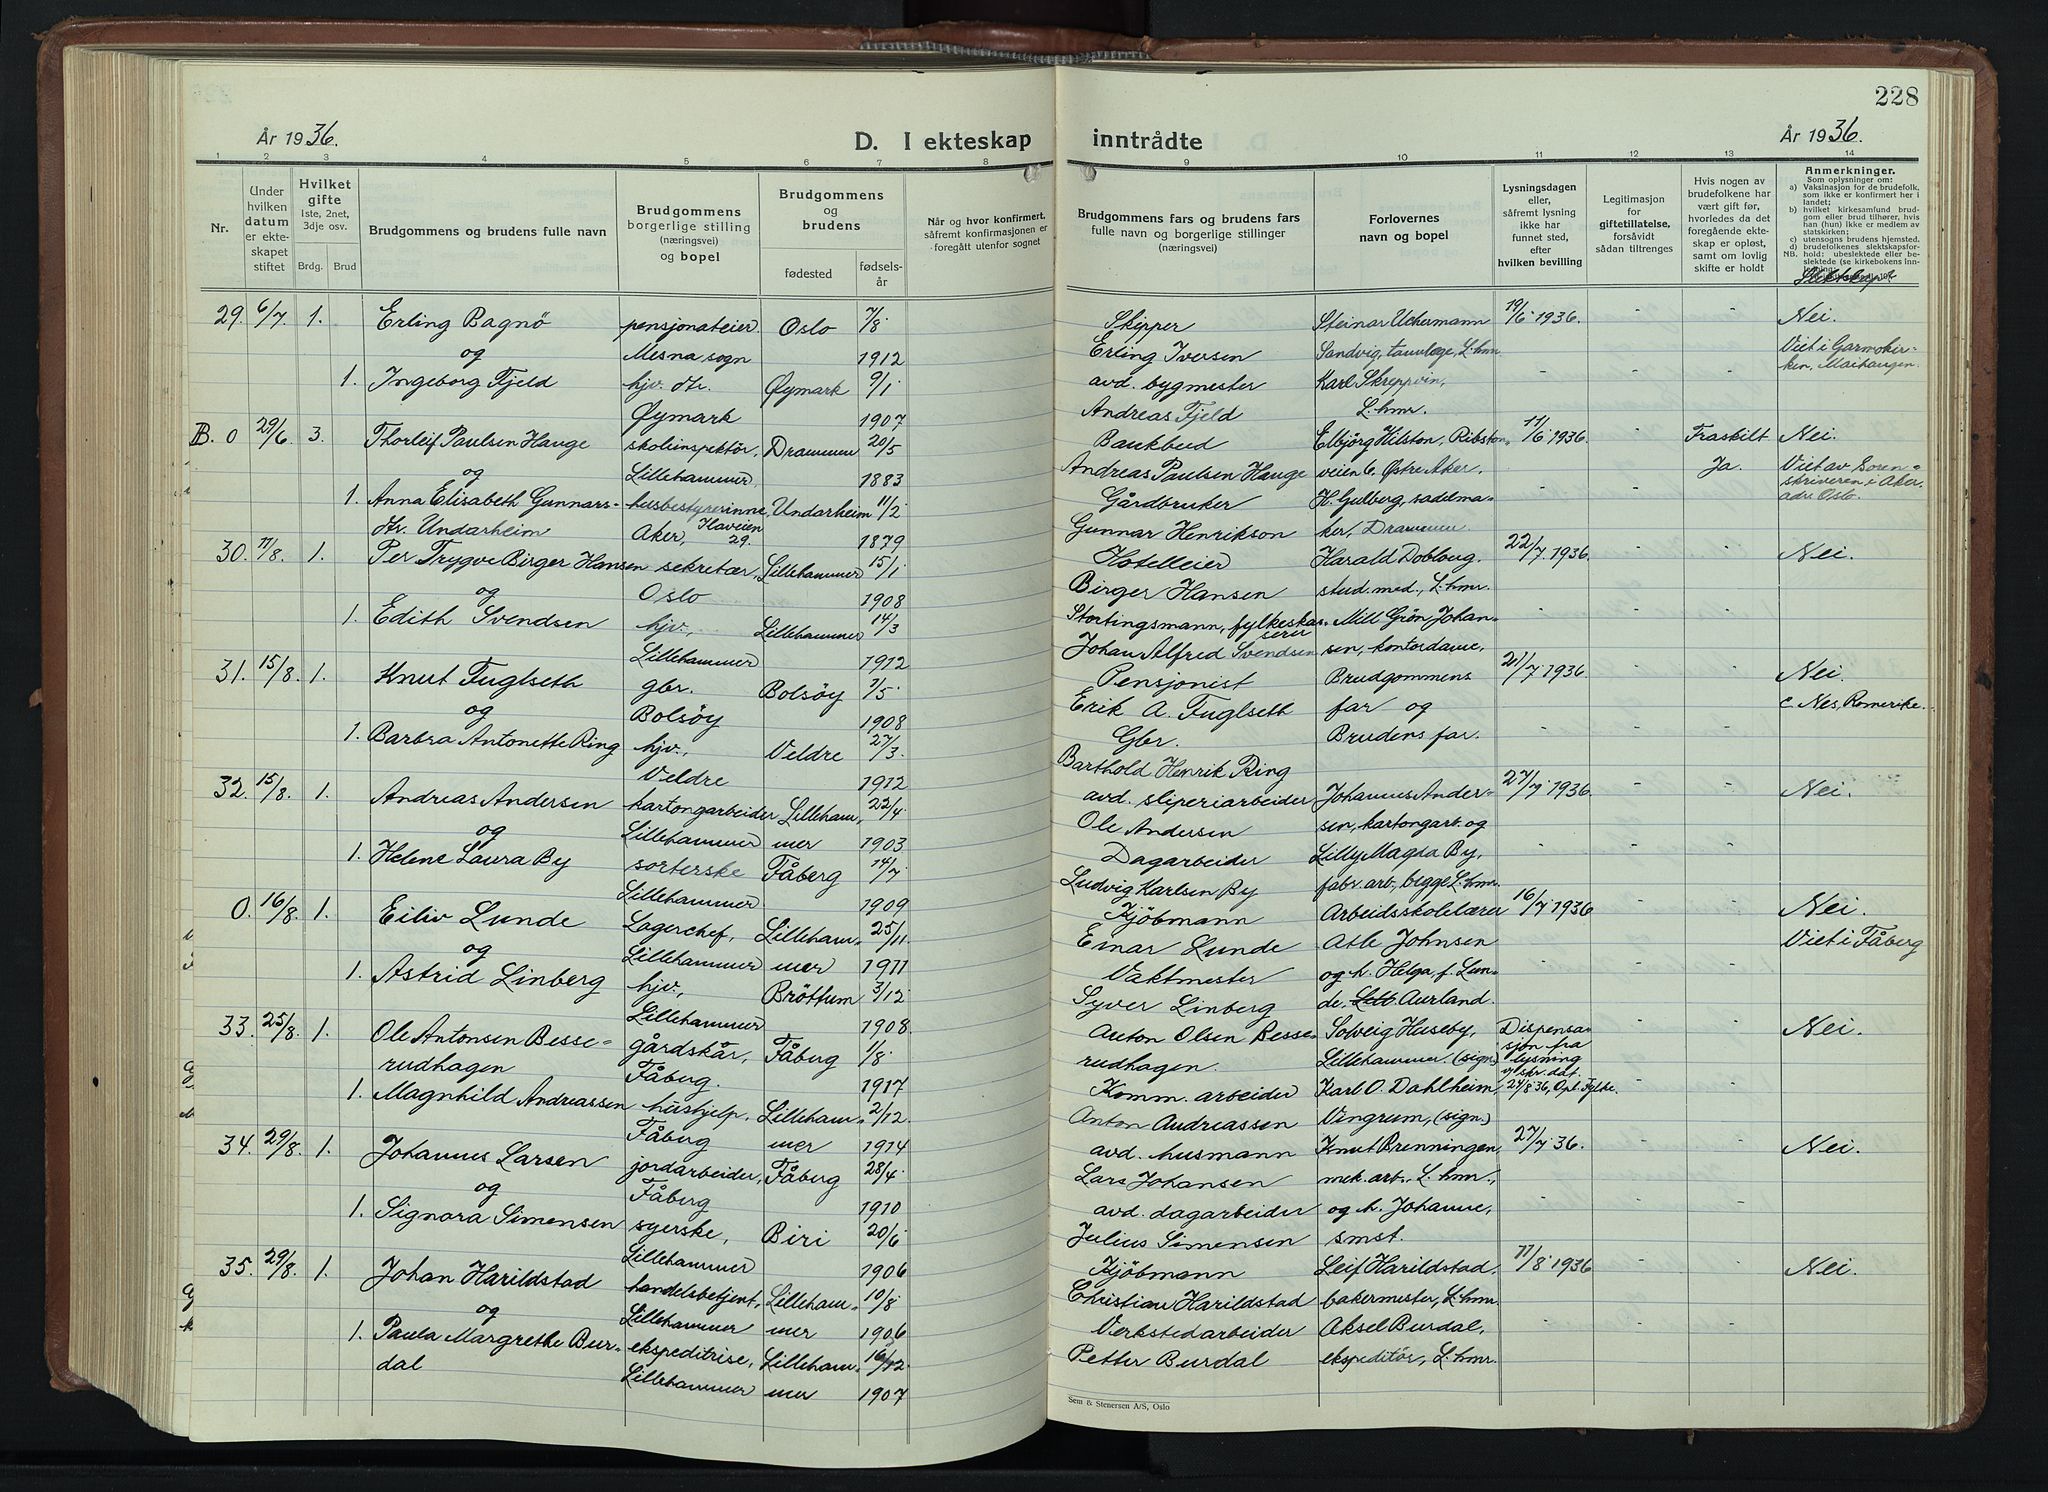 228
År 1936.
D. I ekteskap inntrådte
År 1936.
1 2 3 4 5 6 7 8 9 10 11 12 13 14
Nr.
Under hvilken datum er ekteskapet stiftet
Hvilket gifte 1ste, 2net, 3dje osv.
Brdg. Brud
Brudgommens og brudens fulle navn
Brudgommens borgerlige stilling (næringsvei) og bopel
Brudgommens og brudens
fødested
fødselsår
Når og hvor konfirmert. såfremt konfirmasjonen er foregått utenfor sognet
Brudgommens fars og brudens fars fulle navn og borgerlige stillinger (næringsvei)
Forlovernes navn og bopel
Lysningsdagen eller, såfremt lysning ikke har funnet sted, efter hvilken bevilling
Legitimasjon for giftetillatelse, forsåvidt sådan tiltrenges
Hvis nogen av brudefolkene har vært gift før, hvorledes da det foregående ekteskap er opløst, samt om lovlig skifte er holdt
Anmerkninger.
Som oplysninger om:
a) Vaksinasjon for de brudefolk, som ikke er konfirmert her i landet;
b) hvilket kirkesamfund brudgom eller brud tilhører, hvis han (hun) ikke er medlem av statskirken;
c) utensogns brudens hjemsted.
d) brudefolkenes slektskapsforhold: ubeslektede eller beslektede (se kirkebokens inn-
NB.
Slektskap?
29. 6/7. 1. Erling Bagnö pensjonateier. Oslo 7/8 Skipper Steinar Uchermann 19/6 1936. - - Nei.
og Mesna sogn 1912 Erling Iversen Sandvig, tannlæge, L.hmr Viet i Garmokir-
1. Ingeborg Fjeld hjv. dtr. Øymark 9/1 avd. bygmester Karl Skreppvin, - - - ken, Maihaugen.
Øymark 1907 Andreas Fjeld L.hmr.
B. 0 29/6. 3. Thorleif Paulsen Hauge skoleinspektör, Drammen 20/5 Bankbud Elbjörg Hilston, Ribston- 11/6 1936. - Fraskilt Nei.
og Lillehammer 1883 Andreas Paulsen Hauge veien 6. Østre Aker. Ja. Viet av Soren-
1. Anna Elisabeth Gunnars- husbestyrerinne, Undarheim 11/2 Gårdbruker H. Gulberg, sadelma- - - skriveren i Aker
dtr. Undarheim Aker, 29. 1879 Gunnar Henrikson ker, Drammen adr. Oslo.
30. 11/8. 1. Per Trygve Birger Hansen sekretær, Lillehammer 15/1 Hotelleier Harald Dobloug. 22/7 1936. - - Nei.
og Oslo 1908 Birger Hansen stud. med., L.hmr.
1. Edith Svendsen hjv., Lillehammer 14/3 Stortingsmann, fylkeskas- Mill Grön Johan- - - -
Lillehammer 1912 serer Johan Alfred Svendsen sen, kontordame,
31. 15/8. 1. Knut Fuglseth gbr. Bolsöy 7/5 Pensjonist Brudgommens 21/7 1936. - - Nei.
og Bolsöy 1908 Erik A. Fuglseth far og c. Nes, Romerike.
1. Barbra Antonette Ring hjv., Veldre 27/3. Gbr. Brudens far. - - -
Veldre 1912 Barthold Henrik Ring
32. 15/8. 1. Andreas Andersen kartongarbeider Lilleham- 22/4 avd. sliperiarbeider Johannes Ander- 27/7 1936. - - Nei.
og Lillehammer mer 1903 Ole Andersen sen, kartongarb. og
1. Helene Laura By sorterske Fåberg 14/7 Dagarbeider Lilly Magda By, - - -
Lillehammer 1909 Ludvig Karlsen By fabr. arb., begge L.hmr.
0. 16/8. 1. Eiliv Lunde Lagerchef, Lilleham- 25/11 Kjöbmann Arbeidsskolelærer 16/7 1936 - - Nei.
og Lillehammer mer 1911 Einar Lunde Atle Johnsen Viet i Fåberg
1. Astrid Linberg hjv., Bröttum 3/12 Vaktmester og h. Helga, f. Lun- - - -
Lillehammer 1908. Syver Linberg de. Aurland.
33. 25/8. 1. Ole Antonsen Besse- gårdskår, Fåberg 1/8 Anton Olsen Besse- Solveig Huseby, Dispensa- - - Nei.
rudhagen Fåberg. 1917 rudhagen. Lillehammer. (sign.) sjon fra lysning
1. Magnhild Andreassen hushjelp, Lilleham- 2/12 Komm. arbeider Karl O. Dahlheim, skr. dat. 24/8 36, Opl. Fylke.
Fåberg mer 1914 Anton Andreassen Vingrum, (sign.)
34. 29/8. 1. Johannes Larsen jordarbeider, Fåberg 28/4 avd. husmann Knut Brenningen, 27/7 36. - - Nei.
og Fåberg 1910 Lars Johansen mek. arb., L.hmr.,
1. Signora Simensen syerske, Biri 20/6 avd. dagarbeider og h. Johanne, - - -
Lillehammer 1906 Julius Simensen smst.
35. 29/8. 1. Johan Harildstad handelsbetjent, Lilleham- 10/8 Kjöbmann Leif Harildstad. 11/8 1936 - - Nei.
og Lillehammer mer 1906 Christian Harildstad bakermester, L.hmr.
1. Paula Margrethe Bur- ekspeditrise, Lilleham- 16/12. Verkstedarbeider Aksel Burdal, - - -
dal Lillehammer mer 1907 Petter Burdal ekspeditör, L.hmr.
Sem & Stenersen A/S, Oslo